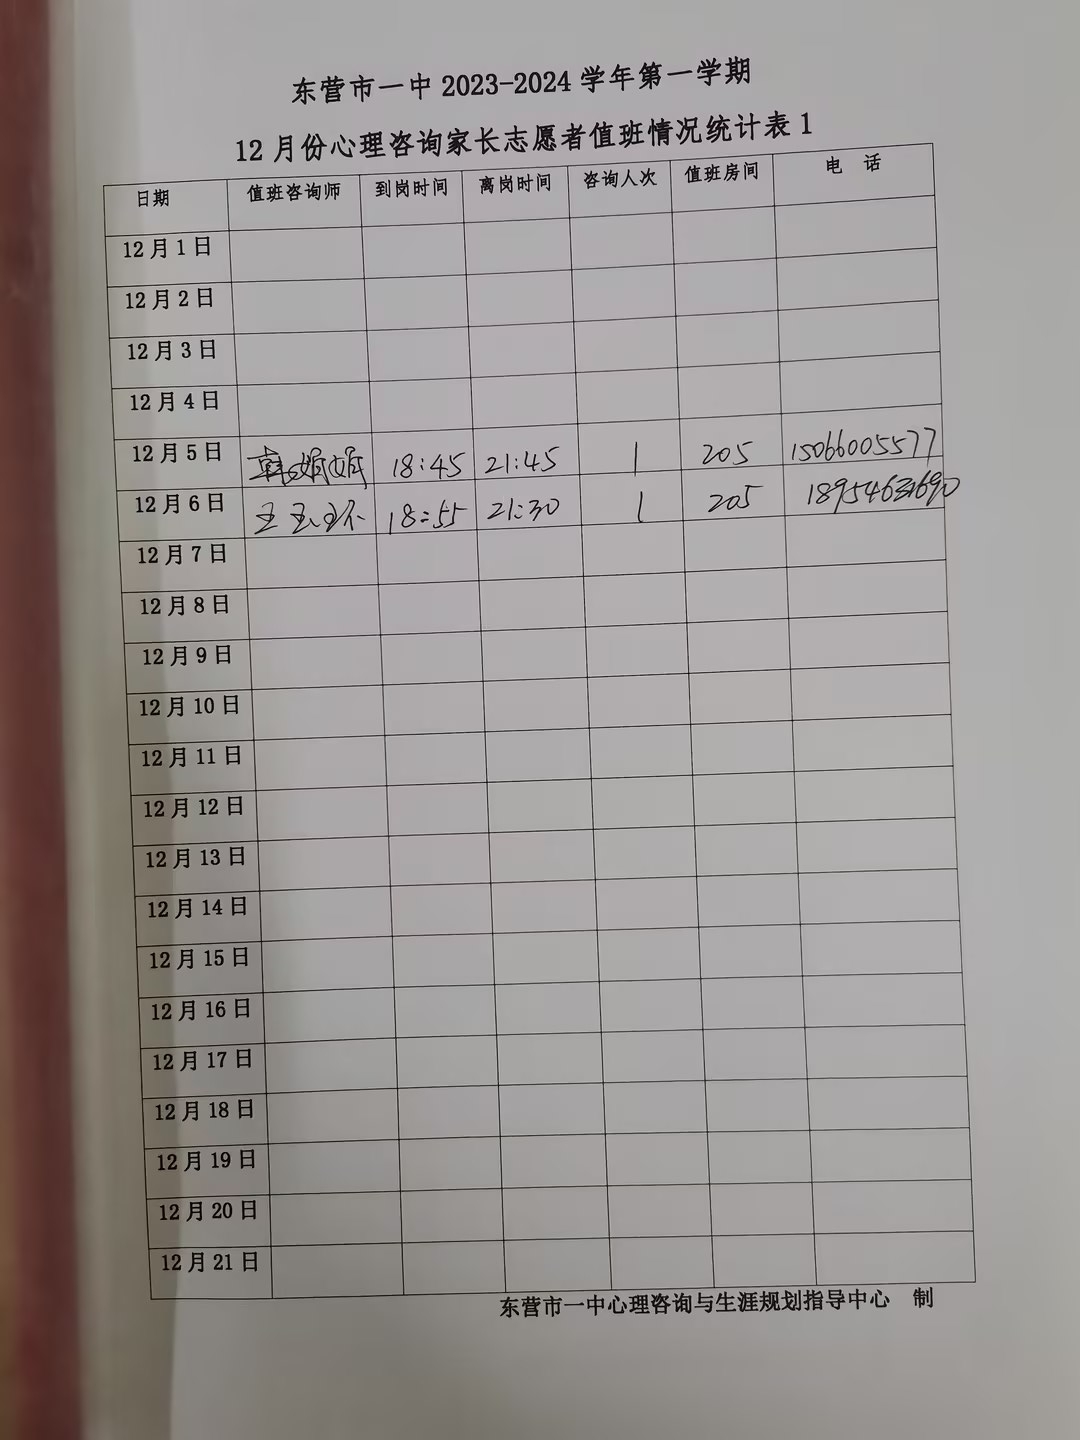 东营市一中 2023-2024 学年第一学期
12 月份心理咨询家长志愿者值班情况统计表 1
日期 值班咨询师 到岗时间 离岗时间 咨询人次 值班房间 电 话
12 月 1 日
12 月 2 日
12 月 3 日
12 月 4 日
12 月 5 日 韩娟娟 18:45 21:45 1 205 15066005577
12 月 6 日 王玉环 18:55 21:30 1 205
12 月 7 日
12 月 8 日
12 月 9 日
12 月 10 日
12 月 11 日
12 月 12 日
12 月 13 日
12 月 14 日
12 月 15 日
12 月 16 日
12 月 17 日
12 月 18 日
12 月 19 日
12 月 20 日
12 月 21 日
东营市一中心理咨询与生涯规划指导中心 制